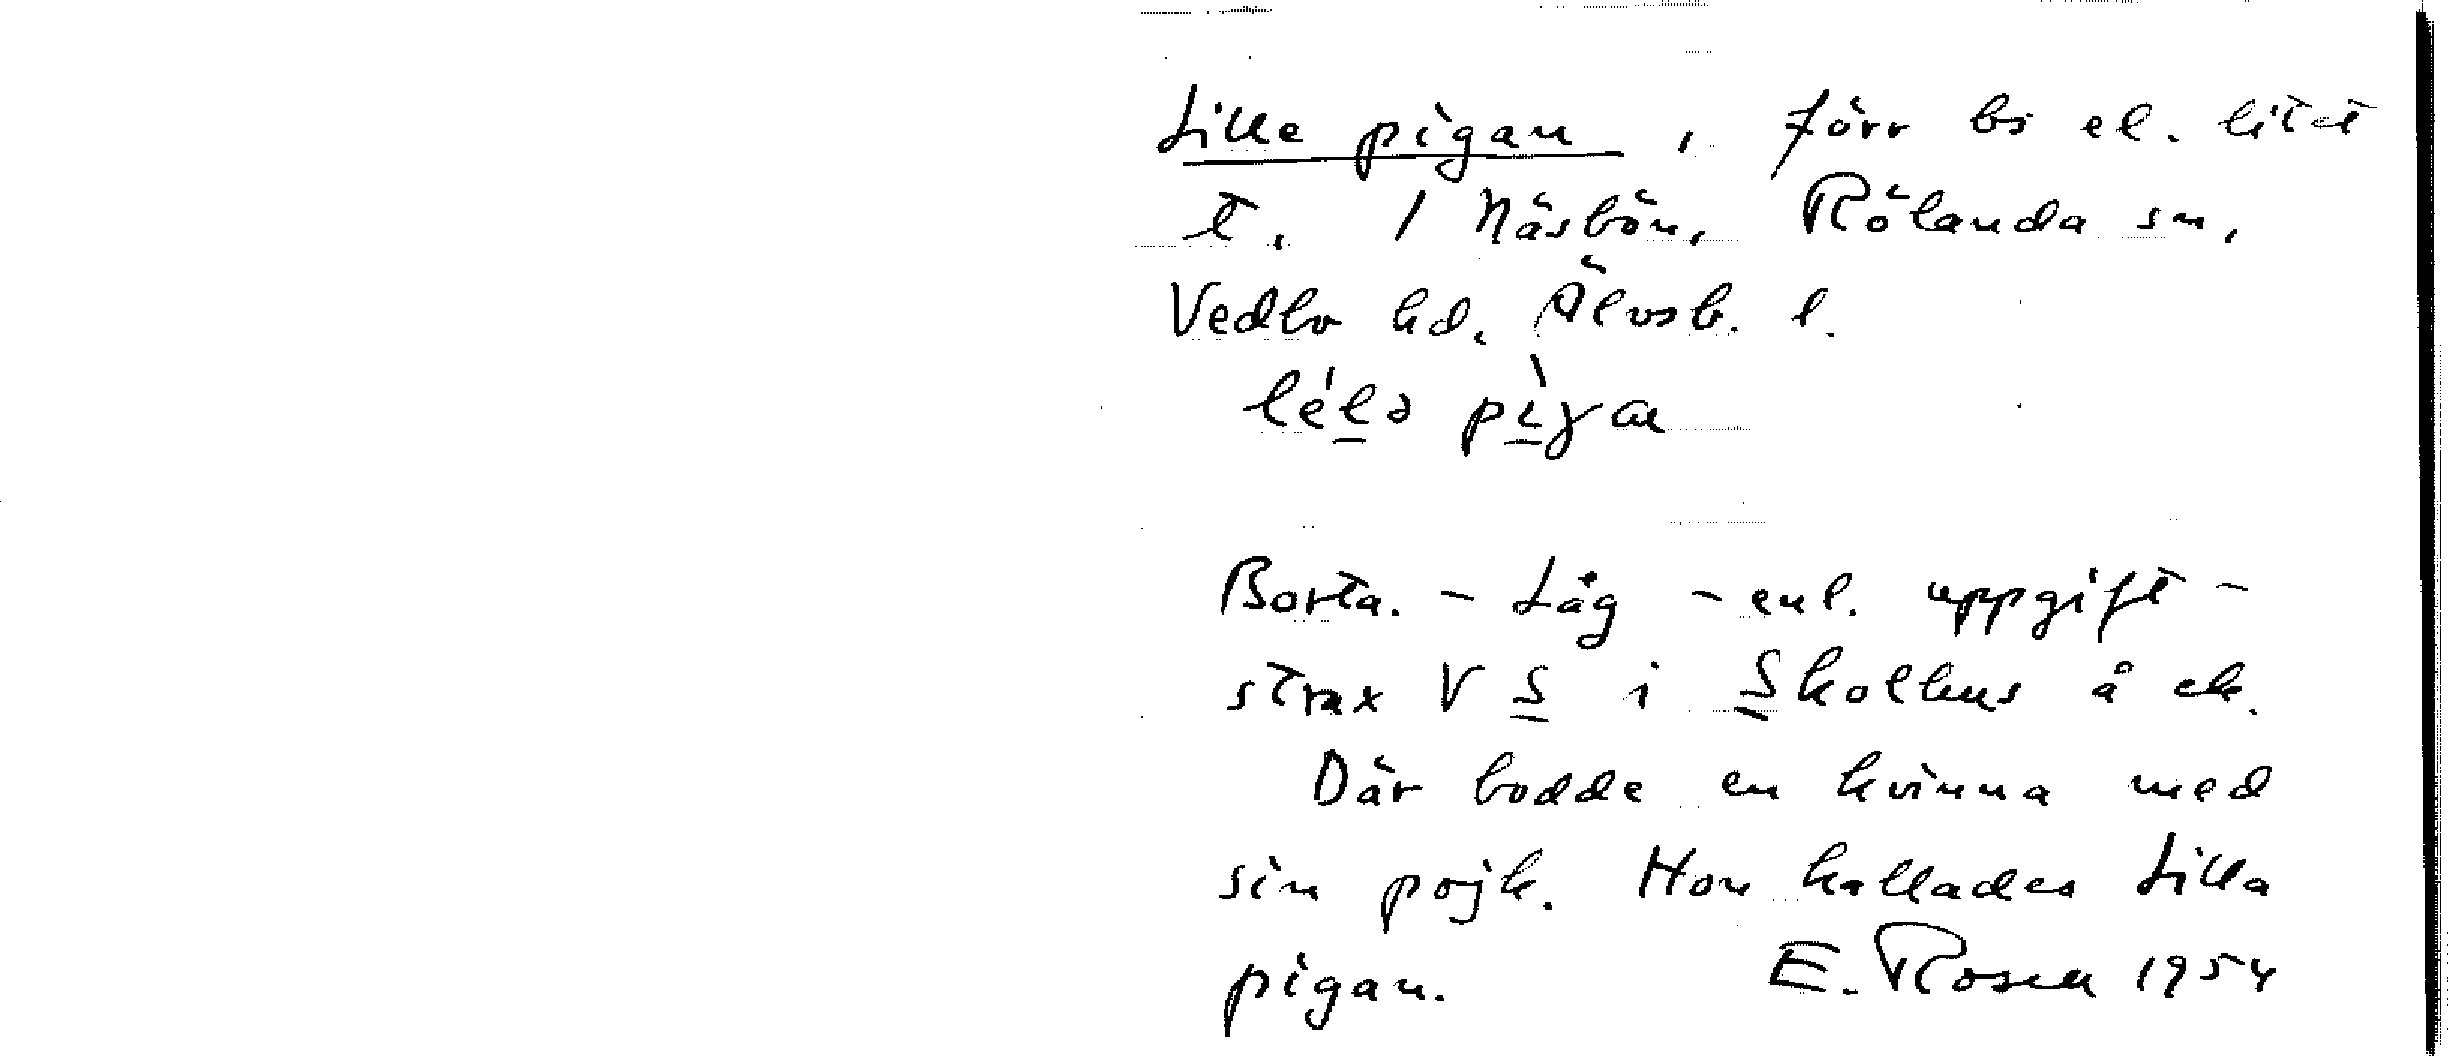 Lille pigan, förr bs el. litet
t. / Näsbön, Rölanda sn,
Vedbo hd. Älvsb. l.
lélə pìgα
Borta. - Låg - enl. uppgift -
strax V S i Skolhus å ek.
Där bodde en kvinna med
sin pojk. Hon kallades Lilla
pigan. E. Rosell 1954